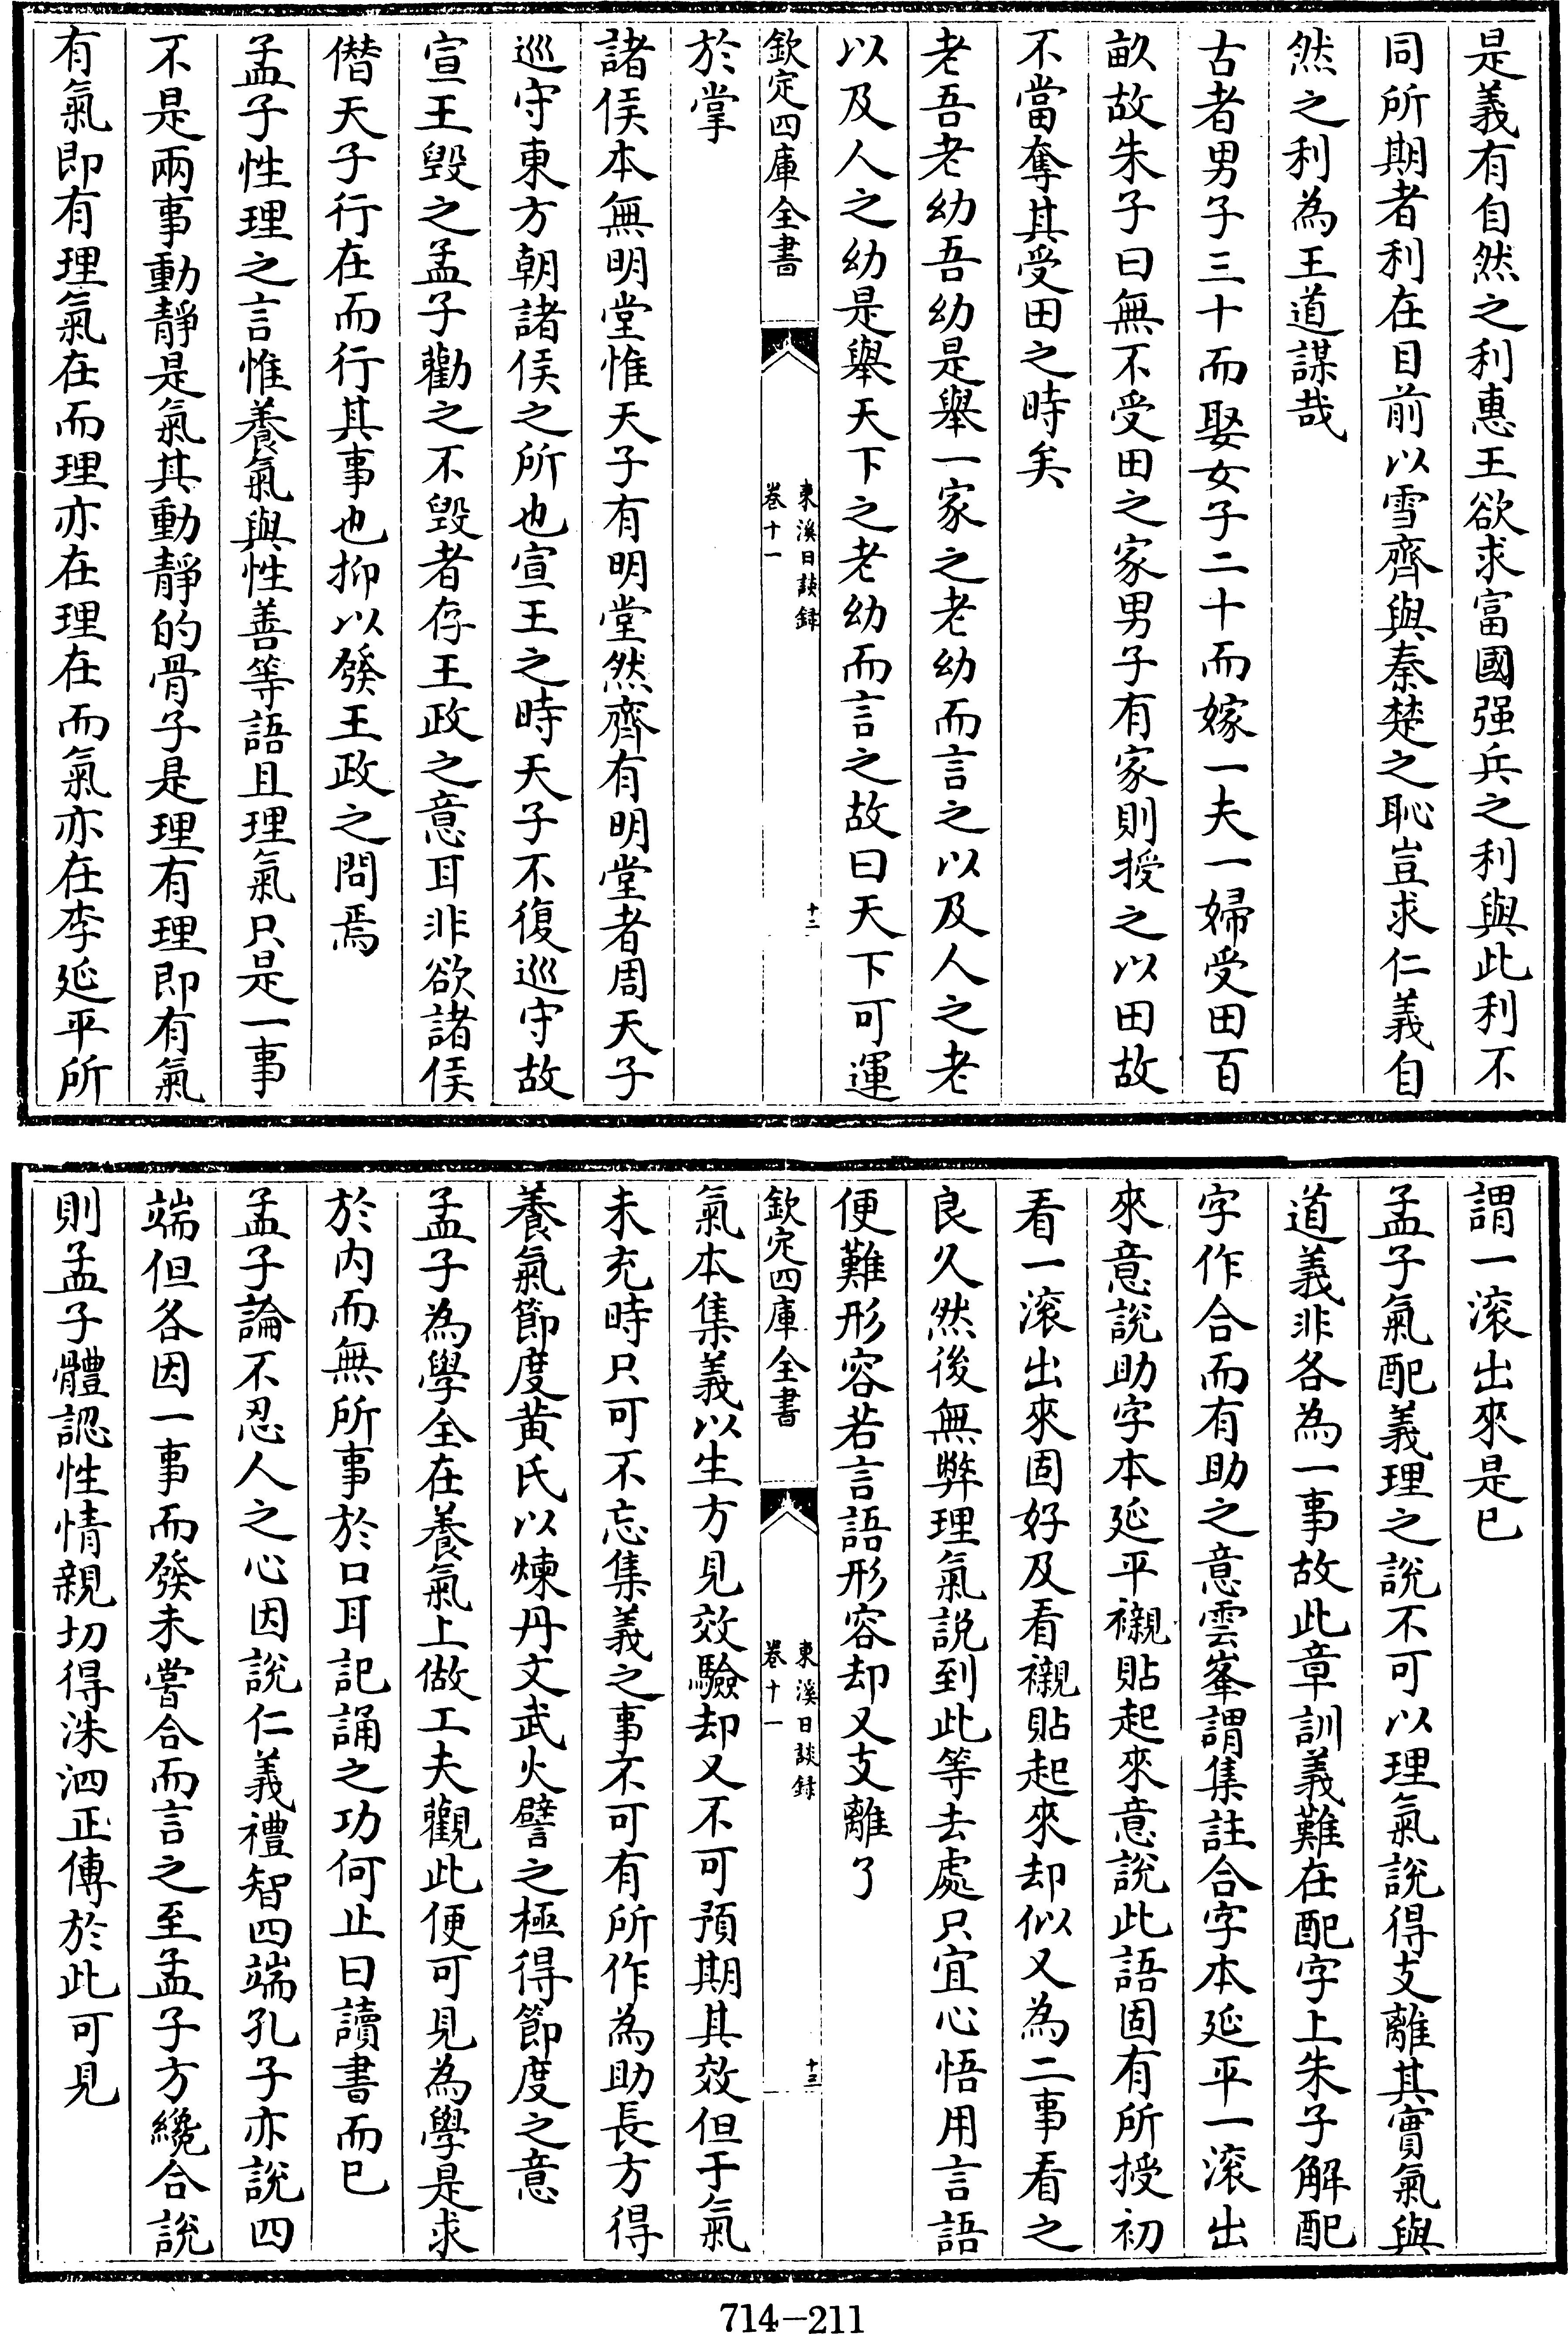 是義有自然之利惠王欲求富國强兵之利與此利不
同所期者利在目前以雪齊與秦楚之恥豈求仁義自
然之利為王道謀哉
古者男子三十而娶女子二十而嫁一夫一婦受田百
畝故朱子曰無不受田之家男子有家則授之以田故
不當奪其受田之時矣
老吾老幼吾幼是舉一家之老幼而言之以及人之老
以及人之幼是舉天下之老幼而言之故曰天下可運
欽定四庫全書
東溪日談録
卷十一
十二
於掌
諸侯本無明堂惟天子有明堂然齊有明堂者周天子
巡守東方朝諸侯之所也宣王之時天子不復巡守故
宣王毀之孟子勸之不毀者存王政之意耳非欲諸侯
僭天子行在而行其事也抑以發王政之問焉
孟子性理之言惟養氣與性善等語且理氣只是一事
不是兩事動靜是氣其動靜的骨子是理有理即有氣
有氣即有理氣在而理亦在理在而氣亦在李延平所
謂一滚出來是已
孟子氣配義理之說不可以理氣說得支離其實氣與
道義非各為一事故此章訓義難在配字上朱子解配
字作合而有助之意雲峯謂集註合字本延平一滚出
來意說助字本延平襯貼起來意說此語固有所授初
看一滚出來固好及看襯貼起來却似又為二事看之
良久然後無弊理氣説到此等去處只宜心悟用言語
便難形容若言語形容却又支離了
欽定四庫全書
東溪日談録
卷十一
十三
氣本集義以生方見效驗却又不可預期其效但于氣
未充時只可不忘集義之事不可有所作為助長方得
養氣節度黄氏以煉丹文武火譬之極得節度之意
孟子為學全在養氣上做工夫觀此便可見為學是求
於内而無所事於口耳記誦之功何止曰讀書而已
孟子論不忍人之心因說仁義禮智四端孔子亦說四
端但各因一事而發未嘗合而言之至孟子方纔合說
則孟子體認性情親切得洙泗正傳於此可見
714-211